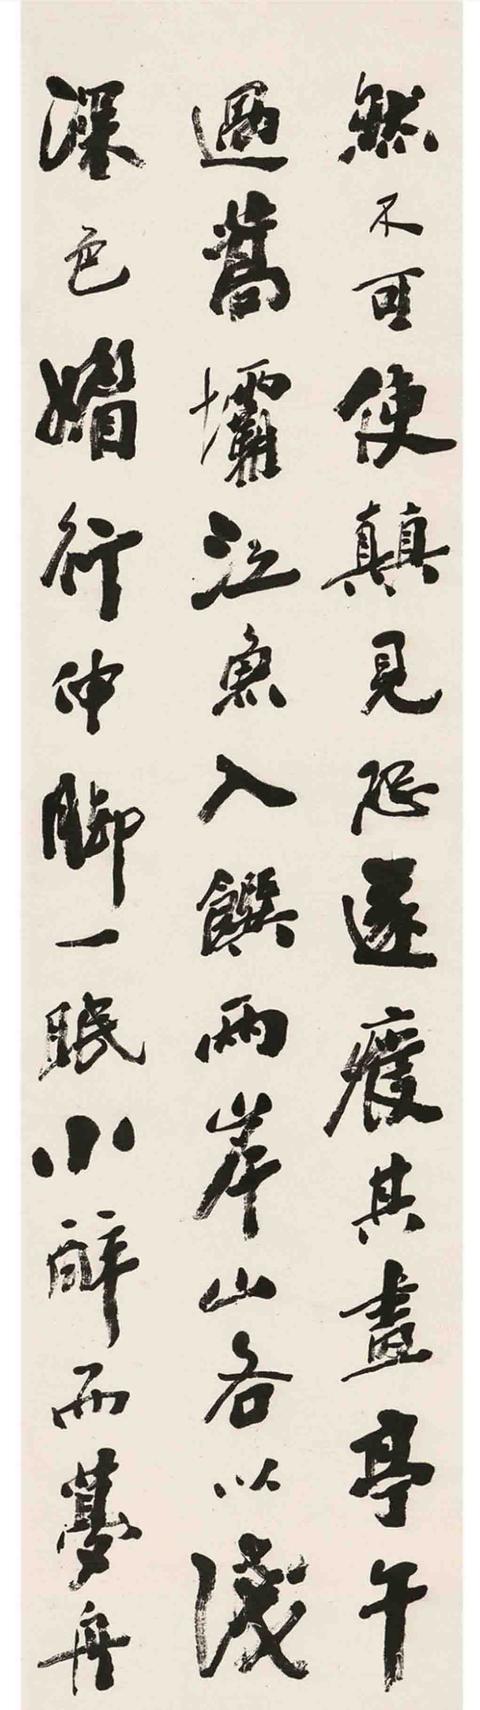 然不可使顛見恐遂癈其畫亭午
過蒿壩江魚入饌兩岸山各以淺
深色媚行伸腳一眠小醉而夢舟